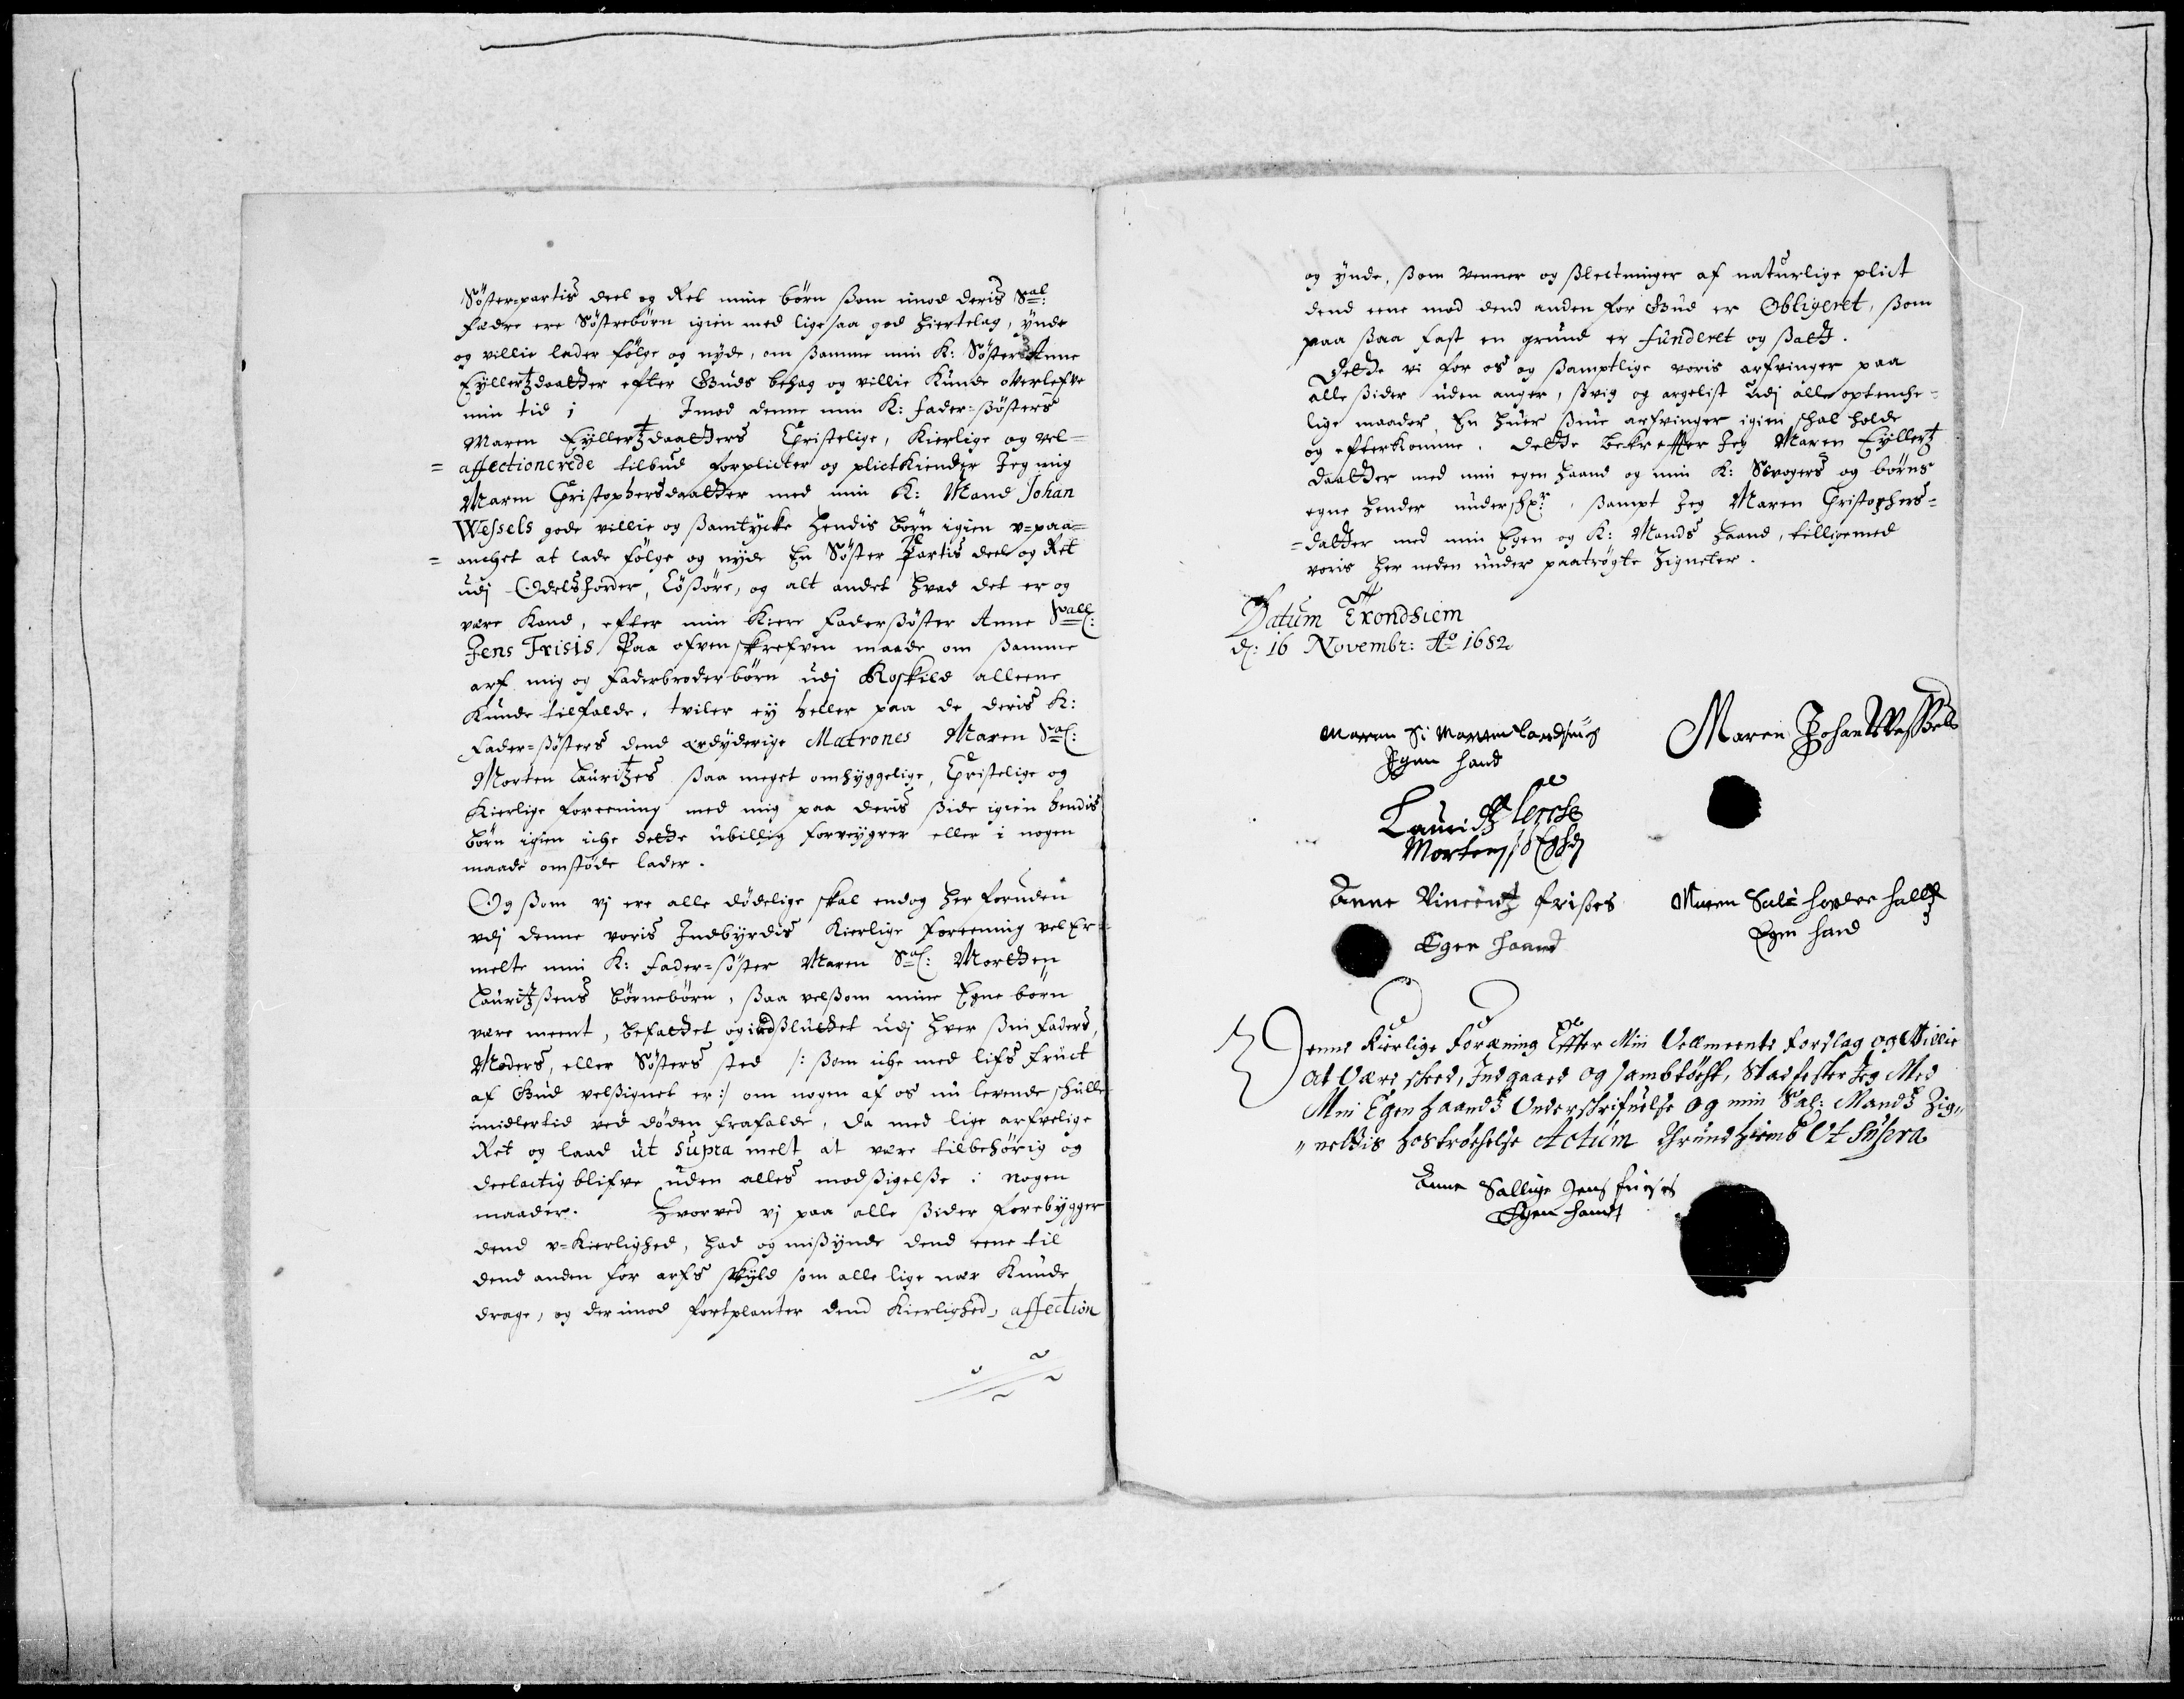 Söster-partis deel og Ret mine börn ßom imod deris Sal:
Fædre ere Söstrebörn igien med ligesaa god hiertelag, ÿnde
og villie lader fölge og nÿde, om ßamme min K: Söster Anne
Eÿllertzdaatter efter Guds behag og villie Kunde overlefve
min tid i Imod denne min K: fader-ßösters
Maren Eÿllertzdaatters Christelige, Kierlige og vel=
= affectionerede tilbud forplicter og plictkiender Jeg mig
Maren Christophersdaatter med min K: Mand Johan
Wessels gode villie og ßamtÿcke hendis börn igien v=paa=
= anchet at lade fölge og nÿde En Söster Partis deel og Ret
udj Odelsjorder, Lößöre, og alt andet hvad det er og
være Kand, efter min Kiere Faderßöster Anne Sall:
Jens Frisis Paa ofvenskrefven maade om ßamme
arf mig og Faderbroder börn udj Roskild alleene
Kunde tilfalde. tviler eÿ heller paa de deris K:
Fader=ßösters dend ærdÿderige Matrones Maren Sal:
Morten Lauritzes ßaa meget omhÿggelige, Christelige og
Kierlige foreening med mig paa deris ßide igien hendis
börn igien iche dette ubillig forveÿgrer eller i nogen
maade omstöde lader.
Og ßom vj ere alle dödelige skal endog her foruden
vdj denne voris Indbÿrdis Kierlige foreening vel Er=
melte min K: Fader=söster Maren Sal: Mortten
Lauritzßens börnebörn, ßaa velßom mine Egne börn
være meent, befattet og indßluttet udj hver ßin Faders,
Moders, eller Sösters sted /: ßom iche med lifs fruct
af Gud velßignet er :/ om nogen af os nu levende schulle
imidlertid ved döden frafalde, da med lige arfvelige
Ret og laad ut supra melt at være tilbehörig og
deelactig blifve uden alles modßigelße i nogen
maader. Hvorved vj paa alle ßider forebÿgger
dend v=kierlighed, had og mißÿnde dend eene til
dend anden for arfs skÿld som alle lige nær Kunde
drage, og der imod fortplanter dend Kierlighed, affection
og ÿnde, ßom venner og ßlectninger af naturlige plict
dend eene mod dend anden for Gud er Obligeret, ßom
paa ßaa fast en grund er funderet og ßatt.
Dette vi for os og ßamptlige voris arfvinger paa
alle ßider uden anger, ßvig og argelist udj alle optenche=
lige maader, En huer ßine arfvinger igien schal holde
og efterkomme. Dette bekreffter Jeg Maren Eÿllertz
daatter med min egen haand og min K: Svogers og börns
egne hender underschr: , ßampt Jeg Maren Christophers=
=datter med min Egen og K: Mands haand, tilligemed
voris her neden under paatrögte Zigneter.
Datum Trondhiem
d: 16 Novembr: Ao 1682.
Maren Sl Morten Lauridsens
Egen hand
Maren Johan Weßels
Lauridtz Lerche
Morten
Anne Vincentz frises
Egen haand
Maren Sali
Egen hand
Denne Kierlige Foræning Effter Min Vellmeente Forslag og Willie
At Være skeed, Indgaaed og sambtöckt, Stadfester Jeg Med
Min Egen Haandtz Underskrifuelse Og min Sal: Mandtz Zig,,
,,nettis hoströchelse Actum Thrundhiemb Ut Supra
Anne Sallige Jens frieses
Egen handt